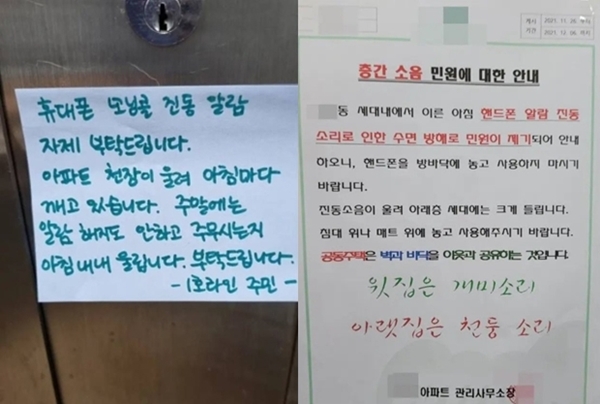 휴대폰 모닝콜 진동 알람
자제 부탁드립니다.
아파트 천장이 울려 아침마다
깨고 있습니다. 주말에는
알람 해지도 안하고 주무시는지
아침내내 울립니다. 부탁드립니다.
- 1호라인 주민 -
게시
기간
2021. 11. 26
2021. 12. 06
층간 소음 민원에 대한 안내
동 세대내에서 이른 아침 핸드폰 알람 진동
소리로 인한 수면 방해로 민원이 제기되어 안내
하오니, 핸드폰을 방바닥에 놓고 사용하지 마시기
바랍니다.
진동소음이 울려 아래층 세대에는 크게 들립니다.
침대 위나 매트 위에 놓고 사용해주시기 바랍니다.
공동주택은 벽과 바닥을 이웃과 공유하는 것입니다.
윗집은 개미소리
아랫집은 천둥 소리
아파트 관리사무소장